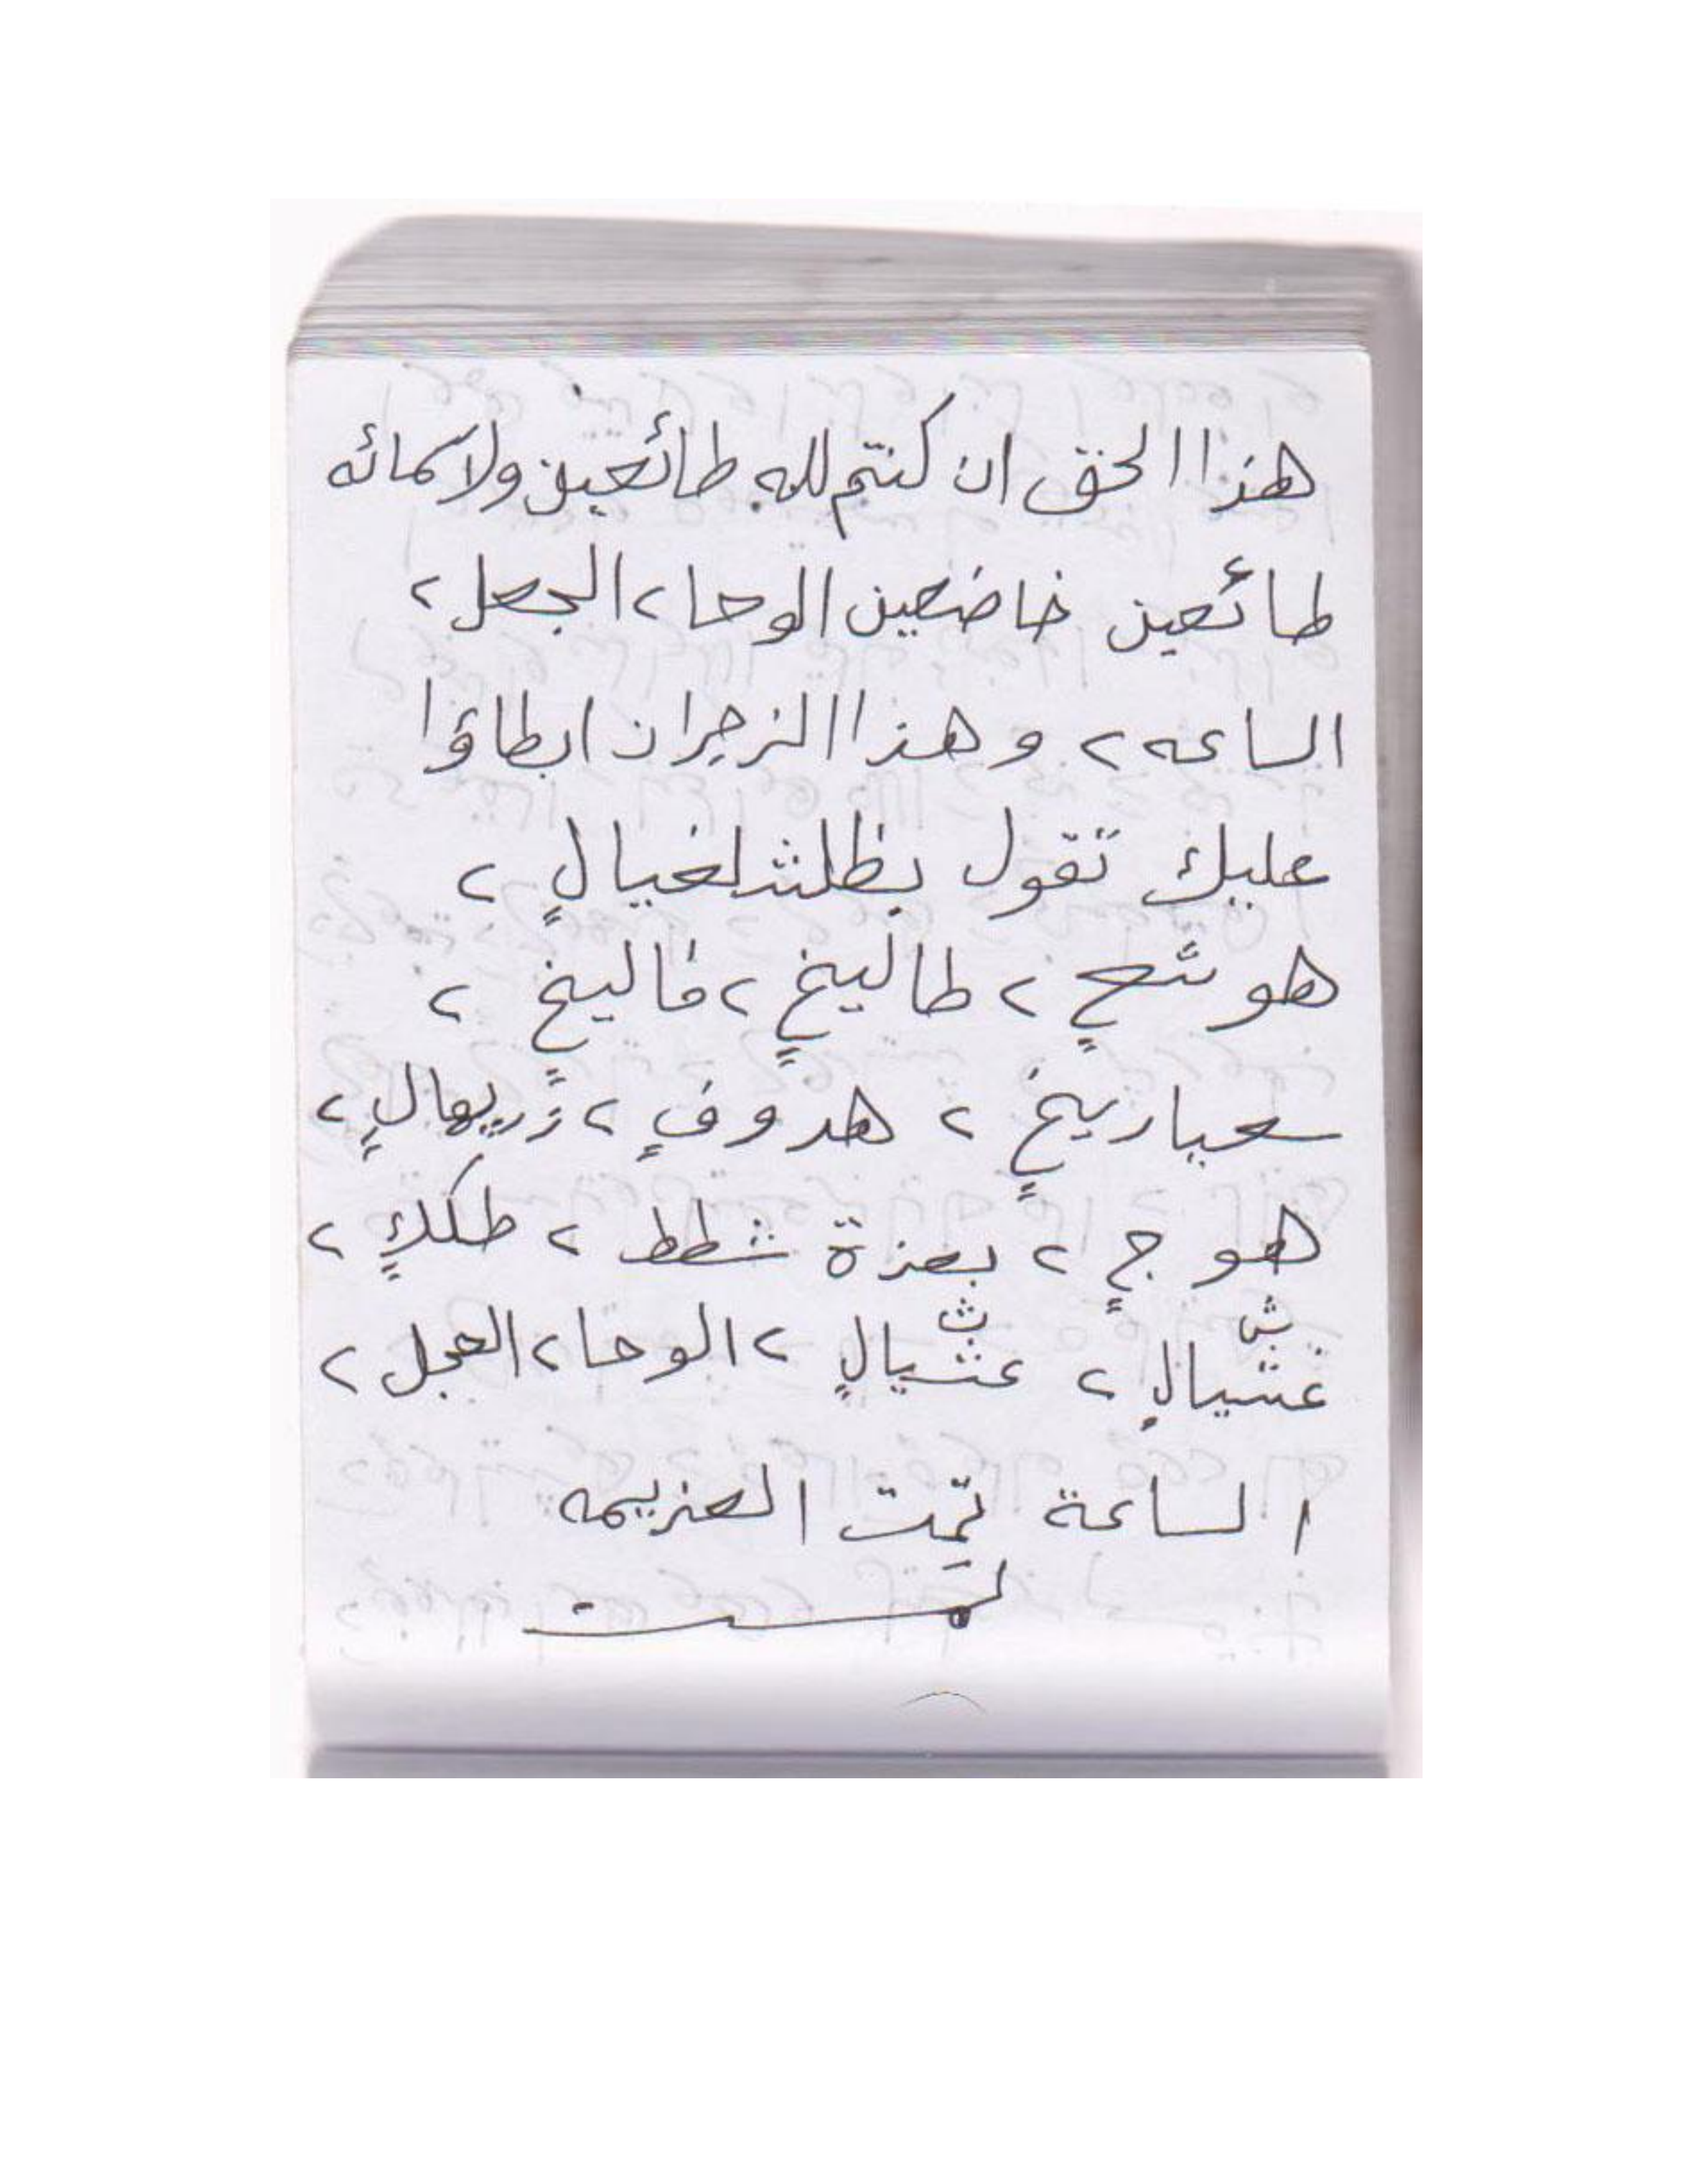 هذا الحق ان كنتم لله طائعين ولاسمائه
طائعين خاضعين الوحا، الجعل،
الساعه، وهذا الزجر ان ابطاؤا
عليك تقول بظلشلغيالٍ،
هوشعٍ، طاليخٍ، فاليخٍ،
سعباريخٍ، هدوفٍ، زريهالٍ،
هوجٍ، بعزة شطط، طلكٍ،
غشيالٍ، عثيالٍ، الوحا، العجل،
الساعة تمت العزيمه
تمت